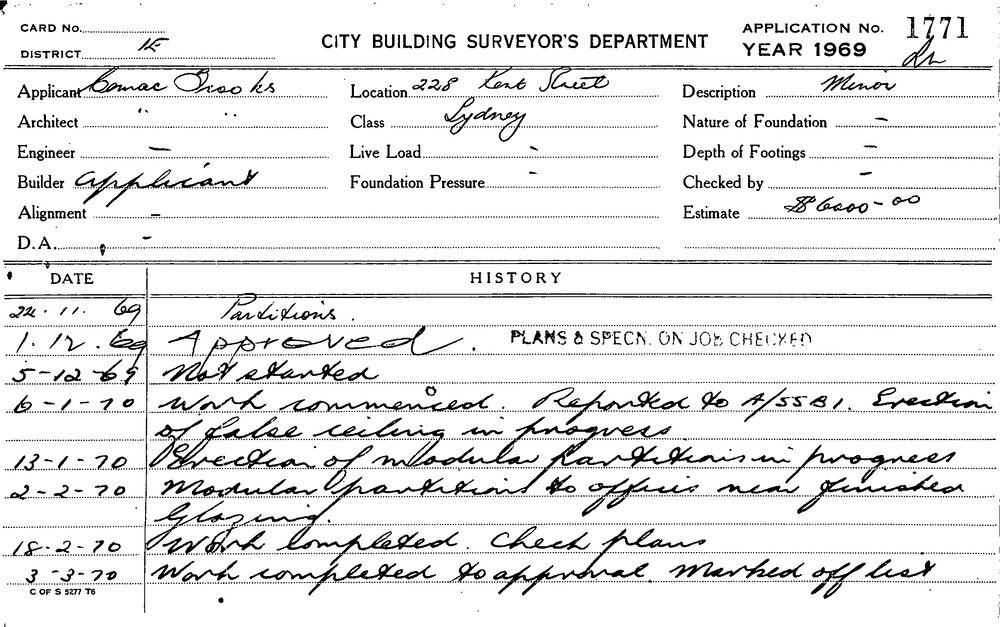 CARD No.
DISTRICT
CITY BUILDING SURVEYOR'S DEPARTMENT
APPLICATION No. 1771
YEAR 1969
Applicant Comac Brooks
Location 228 Kent Street
Description Minor
Architect " "
Class Sydney
Nature of Foundation -
Engineer -
Live Load -
Depth of Footings -
Builder applicant
Foundation Pressure -
Checked by -
Alignment -
Estimate $6000-00
D.A. -
DATE HISTORY
24.11.69 Partitions.
1.12.69 Approved. PLANS & SPECN. ON JOB CHECKED
5-12-69 Not started
6-1-70 Work commenced. Reported to A/SSB1. Erection
of false ceiling in progress
13-1-70 Erection of modular partitions in progress
2-2-70 Modular partitions to offices near finished
Glazing.
18-2-70 Work completed. Check plans
3-3-70 Work completed to approval. Marked off list
C OF S 5277 T6